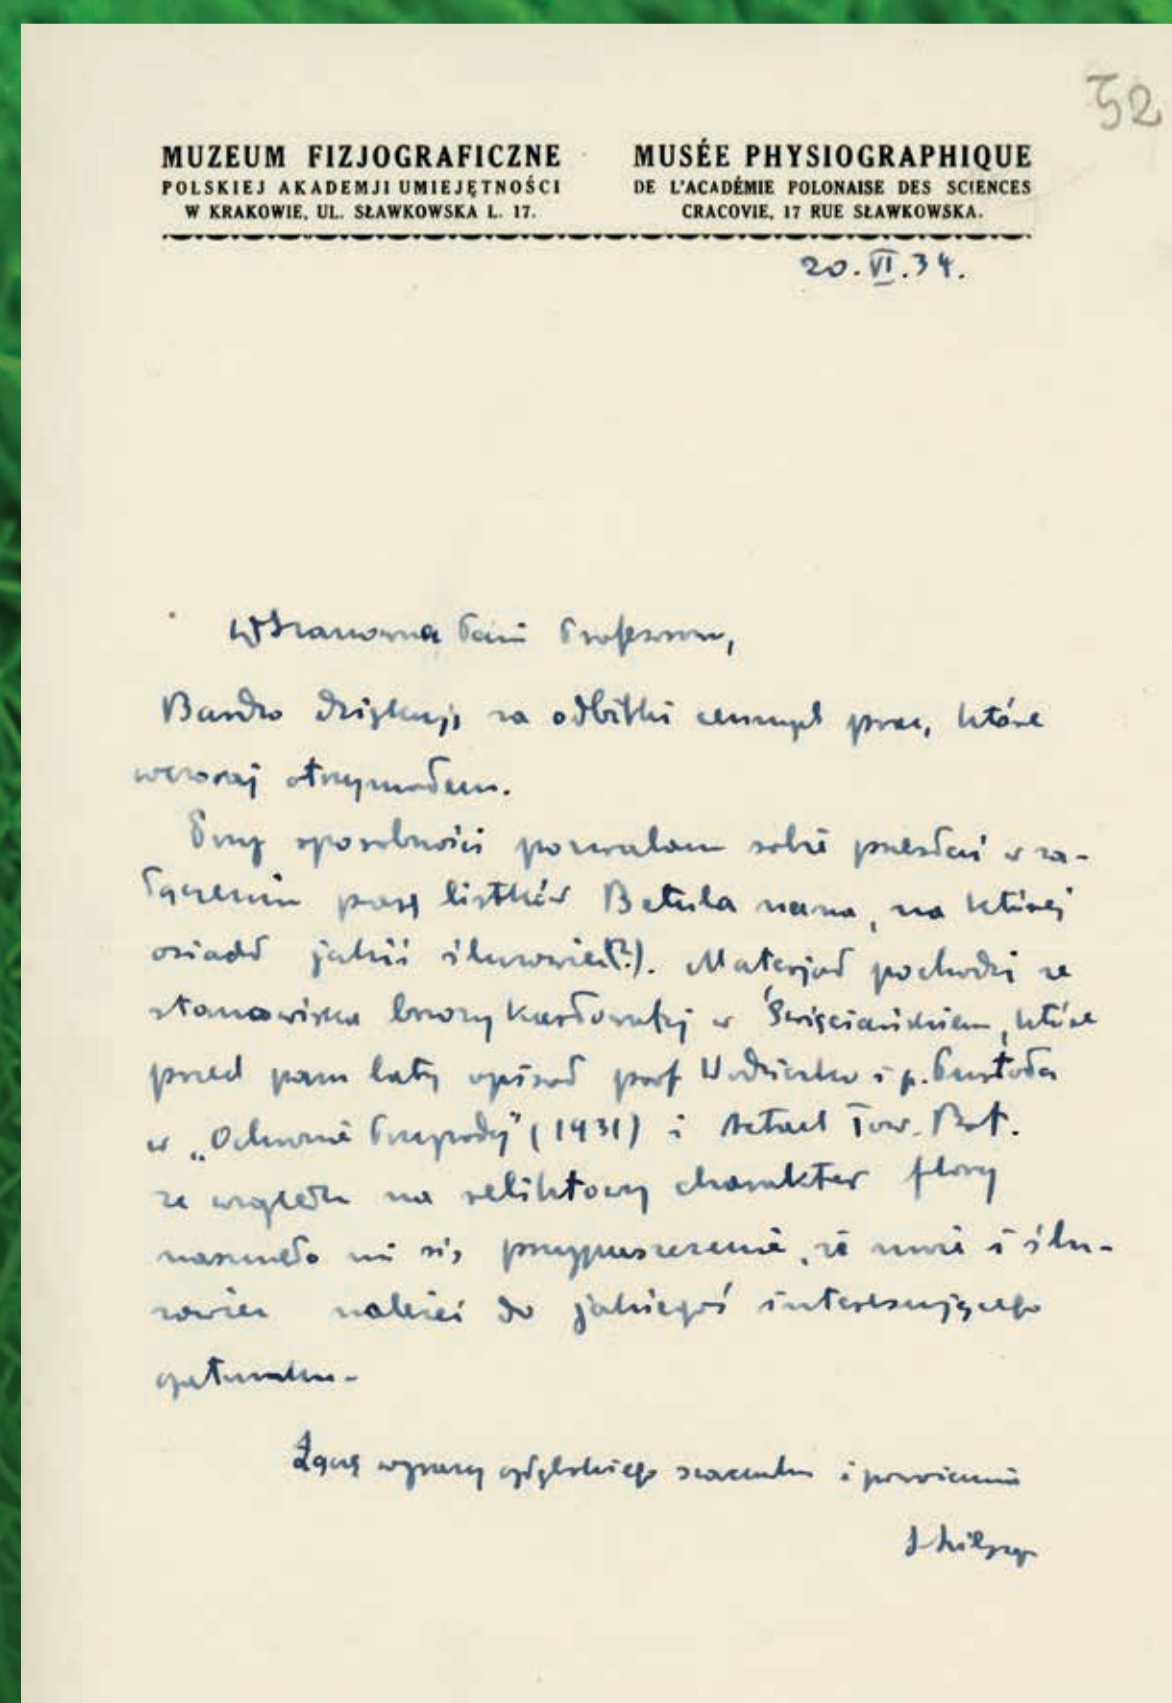 52
MUZEUM FIZJOGRAFICZNE
POLSKIEJ AKADEMJI UMIEJĘTNOŚCI
W KRAKOWIE, UL. SŁAWKOWSKA L. 17.
MUSÉE PHYSIOGRAPHIQUE
DE L'ACADÉMIE POLONAISE DES SCIENCES
CRACOVIE, 17 RUE SŁAWKOWSKA.
20.VI.34.
WSzanowna Pani Profesorow,
Bardzo dziękuję za odbitki cennych prac, które
wczoraj otrzymałem.
Przy sposobności pozwalam sobie przesłać w za-
łączeniu parę listków Betula nana, na której
osiadł jakiś śluzowiec(?). Materjał pochodzi ze
stanowiska brzozy karłowatej w Święciańskiem, które
przed paru laty opisał prof Wodziczko i p.
w „Ochronie Przyrody" (1931) i Actach Tow. Bot.
ze względu na reliktowy charakter flory
nasunęło mi się przypuszczenie, że może i ślu-
zowiec należeć do jakiegoś interesującego
gatunku-
Łączę wyrazy głębokiego szacunku i poważania